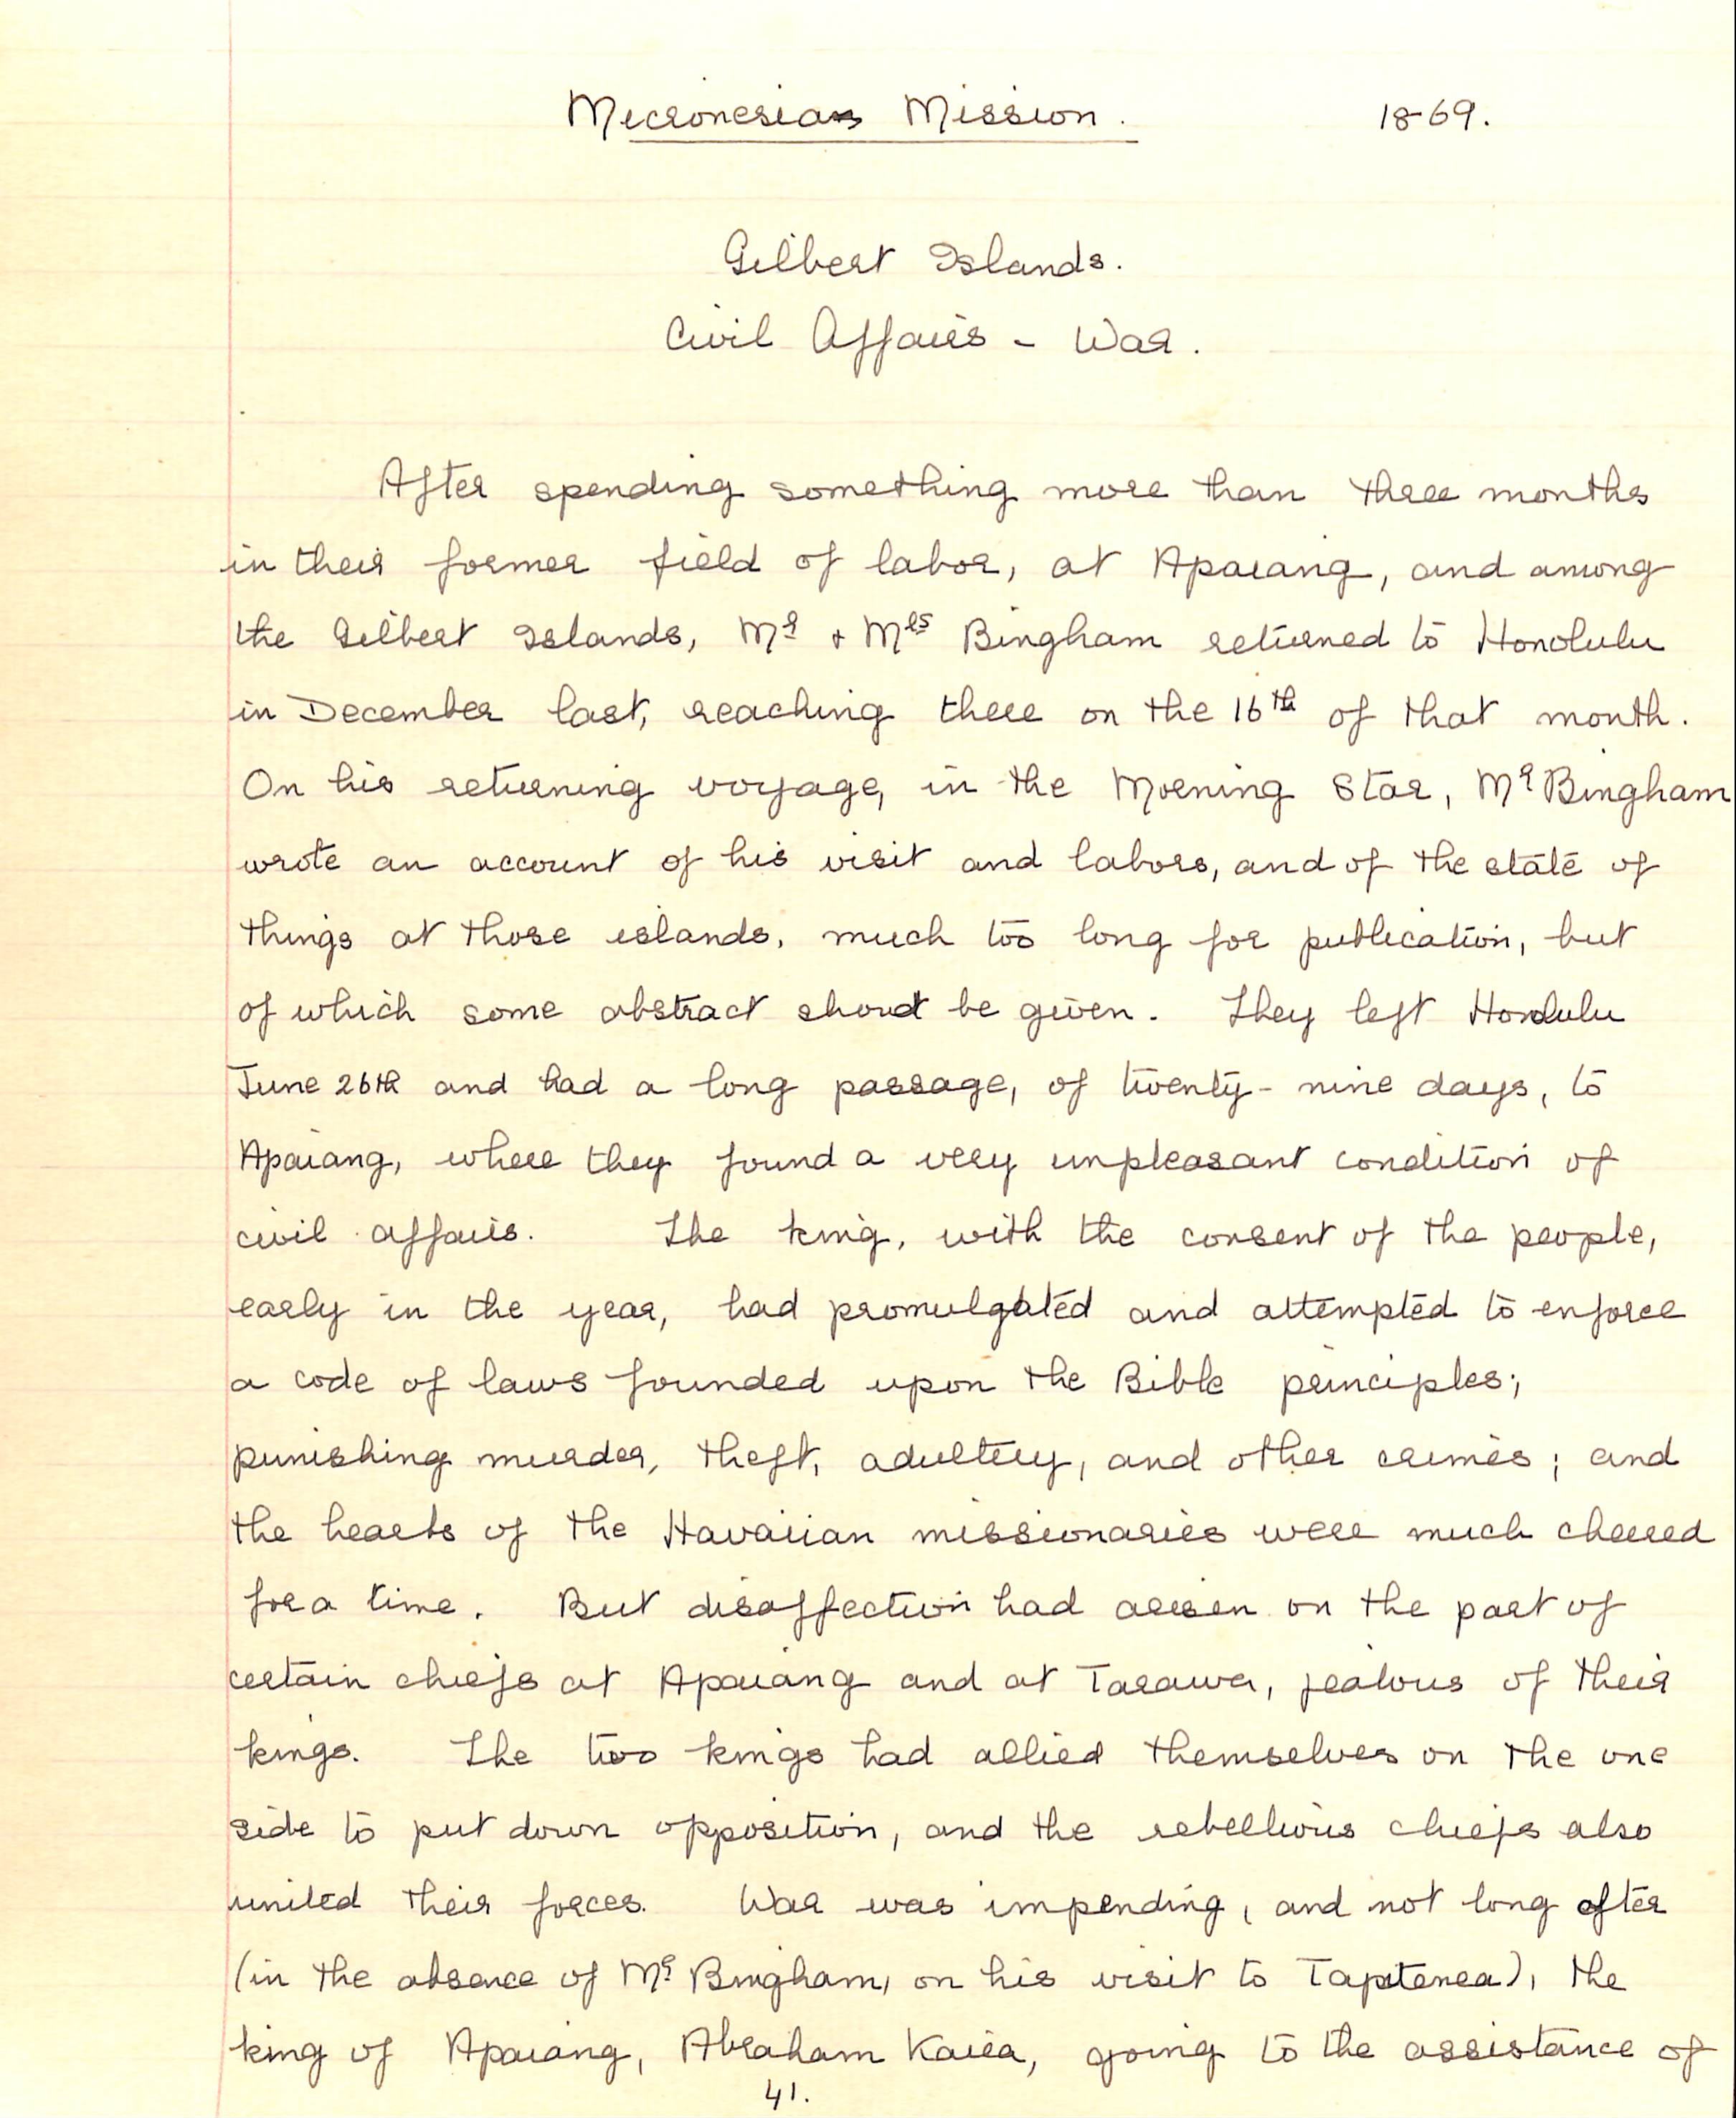 Micronesian Mission. 1869.
Gilbert Islands.
Civil Affairs - War.
After spending something more than three months
in their former field of labor, at Apaiang, and among
the Gilbert Islands, Mr & Mrs Bingham returned to Honolulu
in December last, reaching there on the 16th of that month.
On his returning voyage, in the Morning Star, Mr Bingham
wrote an account of his visit and labors, and of the state of
things at those islands, much too long for publication, but
of which some abstract should be given. They left Honolulu
June 26th and had a long passage, of twenty-nine days, to
Apaiang, where they found a very unpleasant condition of
civil affairs. The king, with the consent of the people,
early in the year, had promulgated and attempted to enforce
a code of laws founded upon the Bible principles;
punishing murder, theft, adultery, and other crimes; and
the hearts of the Hawaiian missionaries were much cheered
for a time. But disaffection had arisen on the part of
certain chiefs at Apaiang and at Tarawa, jealous of their
kings. The two kings had allied themselves on the one
side to put down opposition, and the rebellious chiefs also
united their forces. War was impending, and not long after
(in the absence of Mr Bingham, on his visit to Tapitenea), the
king of Apaiang, Abraham Kaiea, going to the assistance of
41.